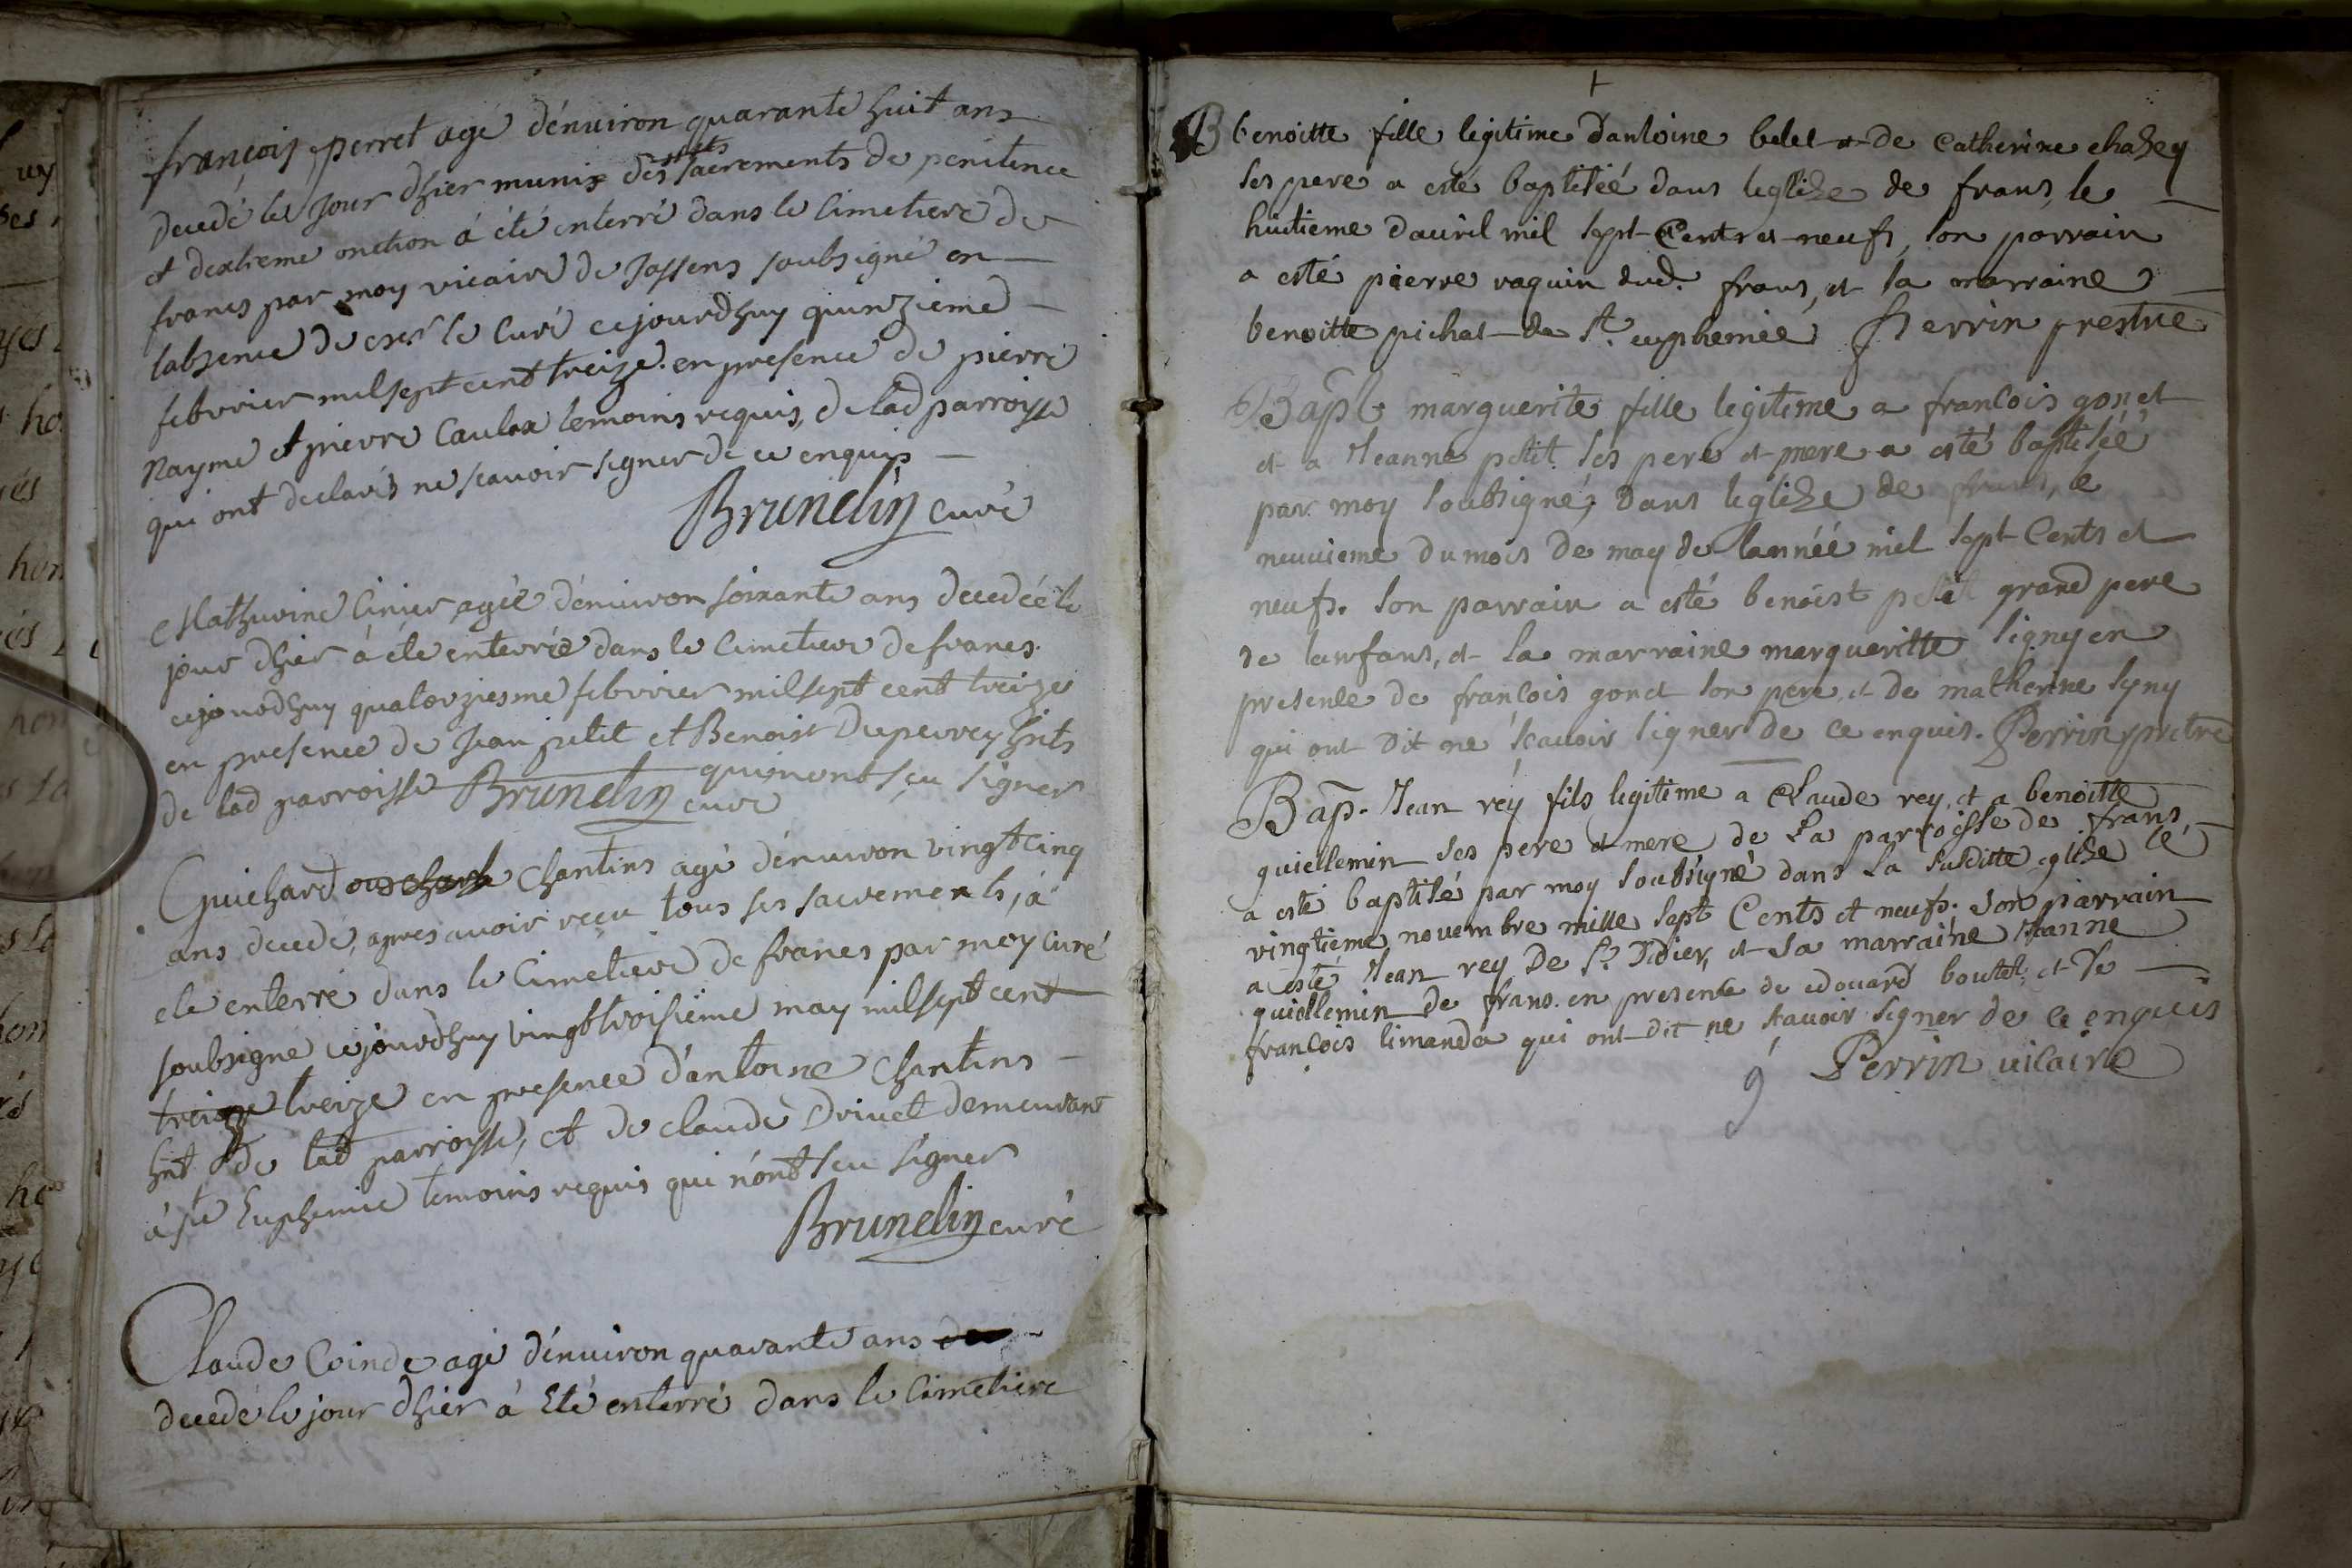 françois perret agé d'énuiron quarante huit ans
decedé le Jour dhier munis des sts sacrements de penitence
et dextreme onction á été enterré dans le Cimetiere de
francs par moy vicaire de Jassens soubsigné en
labsence de mesr le Curé cejourdhuy quinzieme
febvrier milsept cent treize. en presence de pierre
Nayme et pierre Caulex temoins requis, de lad parroisse
qui ont declarés ne scauoir signer de ce enquis
Brunelin curé
Mathurine Cinier agée d'énuiron soixante ans decedée le
jour dhier á éte enterrée dans le Cimetiere de francs
cejourdhuy quatorziesme febvrier milsept cent treize
en presence de Jean petit et Benoist Duperrey hnts
de lad parroisse qui n'ont sçu signer
Brunelin curé
Guichard Chantins agé d'énuiron vingt cinq
ans decedé, apres avoir reçu tous ses sacrements, á
ete enterré dans le Cimetiere de francs par moy curé
soubsigné cejourdhuy vingt troisiéme may milsept cent
treize treize en presence d'antoine Chantins
hnt de lad parroisse, et de claude Drivet demeurant
á ste Euphemie temoins requis qui n'ont scu signer
Brunelin curé
Claude Coinde agé d'énuiron quarante ans
decedé le jour dhier á Eté enterré dans le Cimetiere
B benoitte fille legitime dantoine belet et de Catherine chazey
ses pere a esté baptiséé dans leglize de frans, le
huitieme dauril mil sept Cents et neufs, son parrain
a esté pierre vaquin dud. frans, et la marraine
benoitte pichat de st. euphemie Perrin prestre
Bapt. marguerite fille legitime a francois gonet
et a Jeanne petit ses pere et mere a esté baptiséé
par moy soubsigné, dans leglize de frans, le
neuuieme du mois de may de lannéé mil sept Cents et
neufs. son parrain a esté benoist petit grand pere
de lenfans, et la marraine margueritte signy en
presence de francois gonet son pere, et de matherine syny
qui ont Dit ne sçauoir signer de ce enquis. Perrin pretre
Bap. Jean rey fils legitime a Claude rey, et a benoitte
guiellemin ses pere et mere de La parroisse de frans,
a esté baptisé par moy soubsigné dans la susditte eglize le
vingtieme novembre mille sept Cents et neufs. son parrain
a esté Jean rey De st. Didier, et sa marraine Jeanne
guiellemin de frans. en presence de edouard boutel, et de
françois limanda qui ont dit ne scauoir signer de ce enquis
Perrin uicaire